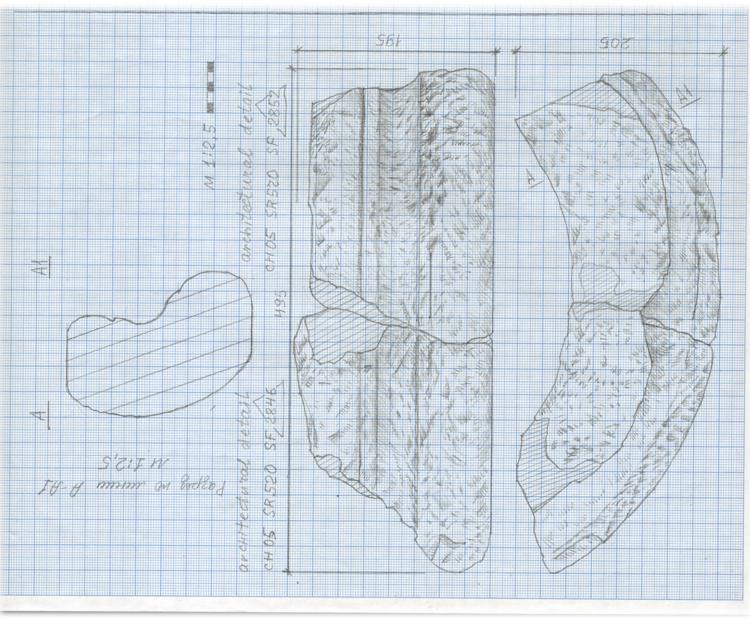 195
205
M 1:2,5
architectural detail
CH05 SR520 SF 2852
A1
A
A1
A
495
architectural detail
CH05 SR520 SF 2846
Разрез по линии А-А1
М 1:2,5